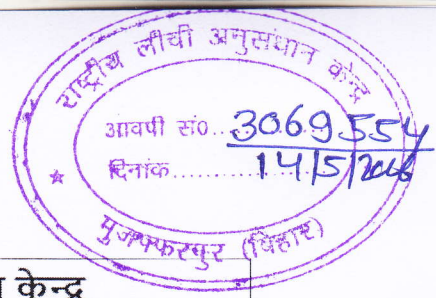 राष्ट्रीय लीची अनुसंधान केन्द्र
आवपी सं०...3069554
दिनांक.......14/5/2016
★
मुजफ्फरपुर (बिहार)
केन्द्र